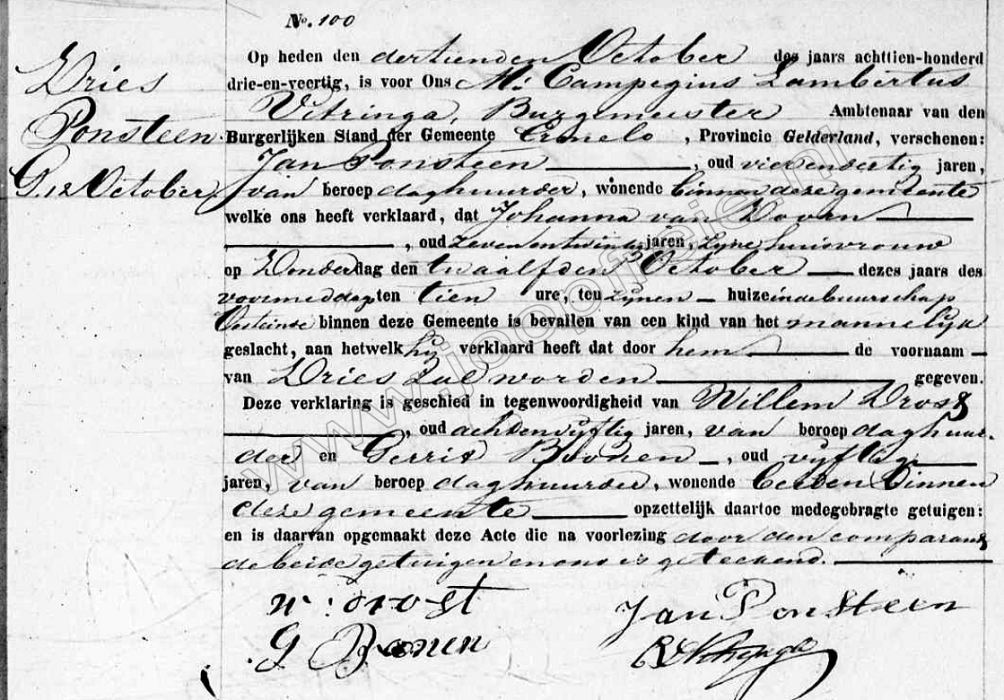 No. 100
Dries
Ponsteen
G. 12 October
Op heden den dertienden October des jaars achttien-honderd
drie-en-veertig, is voor Ons Mr. Campegius Lambertus
Vitringa, Burgemeester Ambtenaar van den
Burgerlijken Stand der Gemeente Ermelo, Provincie Gelderland, verschenen:
Jan Ponsteen, oud vierendertig jaren,
van beroep daghuurder, wonende binnen deze gemeente
welke ons heeft verklaard, dat Johanna van Boven
, oud zevenentwintig jaren, zijne huisvrouw
op Donderdag den twaalfden October dezes jaars des
voormeddag ten tien ure, ten zijnen huize in de buurschap
binnen deze Gemeente is bevallen van een kind van het mannelijk
geslacht, aan hetwelk hij verklaard heeft dat door hem de voornaam
van Dries zal worden gegeven.
Deze verklaring is geschied in tegenwoordigheid van Willem Drost
, oud achtenvijftig jaren, van beroep daghuur-
der en Gerrit Boonen, oud vijftig
jaren, van beroep daghuurder, wonende beiden binnen
deze gemeente opzettelijk daartoe medegebragte getuigen:
en is daarvan opgemaakt deze Acte die na voorlezing door den comparant
de beide getuigen en ons is geteekend.
W: Drost
Jan Ponsteen
G Boonen